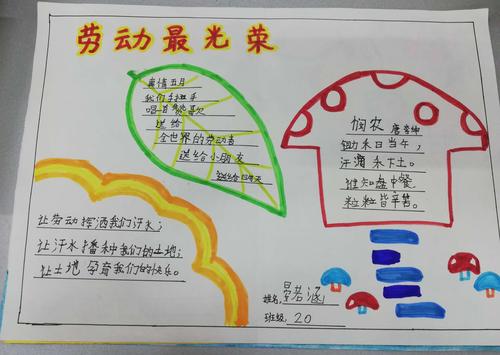 劳动最光荣
真情五月
我们手扭手
唱首歌
送给
全世界的劳动者
送给小朋友
悯农 唐李绅
锄禾日当午，
汗滴禾下土。
谁知盘中餐
粒粒皆辛苦。
让劳动挥洒我们汗水；
让汗水播种我们的土地；
让土地孕育我们的快乐。
姓名：晏若涵
班级：20